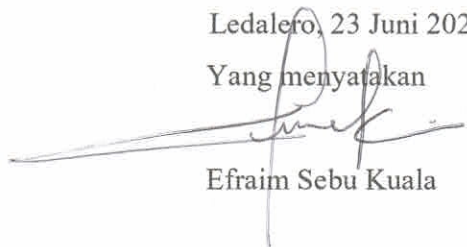 Ledalero, 23 Juni 202
Yang menyatakan
Efraim Sebu Kuala